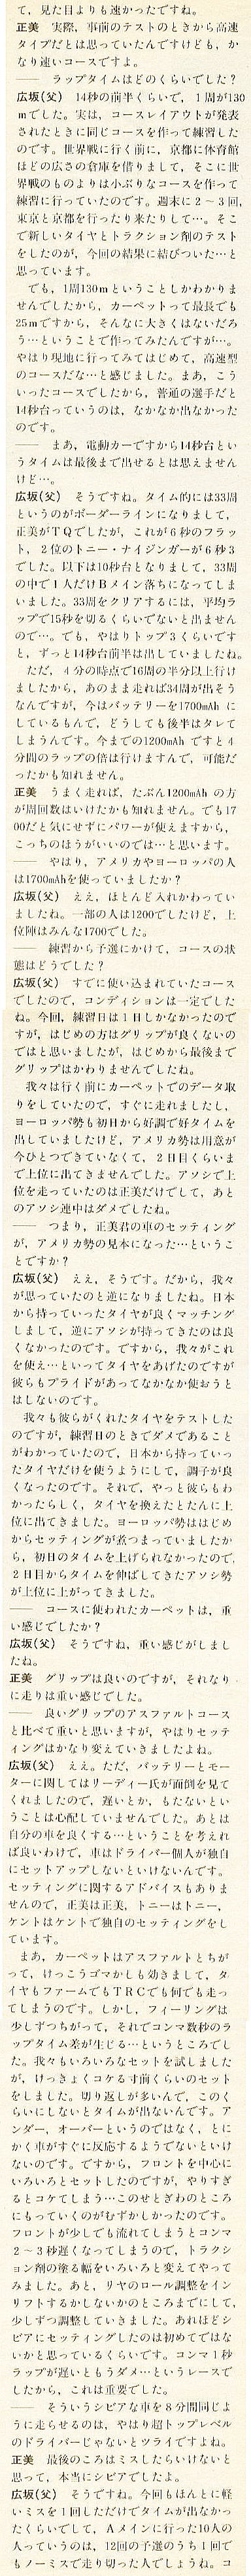 て，見た目よりも速かったですね。
正美　実際，事前のテストのときから高速
タイプだとは思っていたんですけども，か
なり速いコースですよ。
── ラップタイムはどのくらいでした？
広坂(父)　14秒の前半くらいで，1周が130
mでした。実は，コースレイアウトが発表
されたときに同じコースを作って練習した
のです。世界戦に行く前に，京都に体育館
ほどの広さの倉庫を借りまして，そこに世
界戦のものよりは小ぶりなコースを作って
練習に行っていたのです。週末に2～3回，
東京と京都を行ったり来たりして…。そこ
で新しいタイヤとトラクション剤のテスト
をしたのが，今回の結果に結びついた…と
思っています。
でも，1周130mということしかわかりま
せんでしたから，カーペットって最長でも
25mですから，そんなに大きくはないだろ
う…ということで作ってみたんですが…。
やはり現地に行ってみてはじめて，高速型
のコースだな…と感じました。まあ，こう
いったコースでしたから，普通の選手だと
14秒台っていうのは，なかなか出なかった
のです。
── まあ，電動カーですから14秒台とい
うタイムは最後まで出せるとは思えません
けど…。
広坂(父)　そうですね。タイム的には33周
というのがボーダーラインになりまして，
正美がTQでしたが，これが6秒のフラッ
ト，2位のトニー・ナイジンガーが6秒3
でした。以下は10秒台となりまして，33周
の中で1人だけBメイン落ちになってしま
いました。33周をクリアするには，平均ラ
ップで15秒を切るくらいでないと出ません
ので…。でも，やはりトップ3くらいです
と，ずっと14秒台前半は出していましたね。
ただ，4分の時点で16周の半分以上行け
ましたから，あのまま走れば34周が出そう
なんですが，今はバッテリーを1700mAhに
しているもんで，どうしても後半はタレて
しまうんです。今までの1200mAhですと4
分間のラップの倍は行けますんで，可能だ
ったかも知れません。
正美　うまく走れば，たぶん1200mAhの方
が周回数はいけたかも知れません。でも17
00だと気にせずにパワーが使えますから，
こっちのほうがいいのでは…と思います。
── やはり，アメリカやヨーロッパの人
は1700mAhを使っていましたか？
広坂(父)　ええ，ほとんど入れかわってい
ましたね。一部の人は1200でしたけど，上
位陣はみんな1700でした。
── 練習から予選にかけて，コースの状
態はどうでした？
広坂(父)　すでに使い込まれていたコース
でしたので，コンディションは一定でした
ね。今回，練習日は1日しかなかったので
すが，はじめの方はグリップが良くないの
ではと思いましたが，はじめから最後まで
グリップはかわりませんでしたね。
我々は行く前にカーペットでのデータ取
りをしていたので，すぐに走れましたし，
ヨーロッパ勢も初日から好調で好タイムを
出していましたけど，アメリカ勢は用意が
今ひとつできていなくて，2日目くらいま
で上位に出てきませんでした。アソシで上
位を走っていたのは正美だけでして，あと
のアソシ連中はダメでしたね。
── つまり，正美君の車のセッティング
が，アメリカ勢の見本になった…というこ
とですか？
広坂(父)　ええ，そうです。だから，我々
が思っていたのと逆になりましたね。日本
から持っていったタイヤが良くマッチング
しまして，逆にアソシが持ってきたのは良
くなかったのです。ですから，我々がこれ
を使え…といってタイヤをあげたのですが
彼らもプライドがあってなかなか使おうと
はしないのです。
我々も彼らがくれたタイヤをテストした
のですが，練習日のときでダメであること
がわかっていたので，日本から持っていっ
たタイヤだけを使うようにして，調子が良
くなったのです。それで，やっと彼らもわ
かったらしく，タイヤを換えたとたんに上
位に出てきました。ヨーロッパ勢ははじめ
からセッティングが煮つまっていましたか
ら，初日のタイムを上げられなかったので，
2日目からタイムを伸ばしてきたアソシ勢
が上位に上がってきました。
── コースに使われたカーペットは，重
い感じでしたか？
広坂(父)　そうですね，重い感じがしまし
たね。
正美　グリップは良いのですが，それなり
に走りは重い感じでした。
── 良いグリップのアスファルトコース
と比べて重いと思いますが，やはりセッテ
ィングはかなり変えていきましたよね。
広坂(父)　ええ。ただ，バッテリーとモー
ターに関してはリーディー氏が面倒を見て
くれましたので，遅いとか，もたないとい
うことは心配していませんでした。あとは
自分の車を良くする…ということを考えれ
ば良いわけで，車はドライバー個人が独自
にセットアップしないといけないんです。
セッティングに関するアドバイスもありま
せんので，正美は正美，トニーはトニー，
ケントはケントで独自のセッティングをし
ています。
まあ，カーペットはアスファルトとちが
って，けっこうゴマかしも効きまして，タ
イヤもファームでもTRCでも何でも走っ
てしまうのです。しかし，フィーリングは
少しずつちがって，それでコンマ数秒のラ
ップタイム差が生じる…というところでし
た。我々もいろいろなセットを試しました
が，けっきょくコケる寸前くらいのセット
をしました。切り返しが多いんで，このく
らいにしないとタイムが出ないんです。ア
ンダー，オーバーというのではなく，とに
かく車がすぐに反応するようでないといけ
ないのです。ですから，フロントを中心に
いろいろとセットしたのですが，やりすぎ
るとコケてしまう…このせとぎわのところ
にもっていくのがむずかしかったのです。
フロントが少しでも流れてしまうとコンマ
2～3秒遅くなってしまうので，トラクシ
ョン剤の塗る幅をいろいろと変えてやって
みました。あと，リヤのロール調整をイン
リフトするかしないかのところまでにして，
少しずつ調整していきました。あれほどシ
ビアにセッティングしたのは初めてではな
いかと思っているくらいです。コンマ1秒
ラップが遅いともうダメ…というレースで
したから，これは重要でした。
── そういうシビアな車を8分間同じよ
うに走らせるのは，やはり超トップレベル
のドライバーじゃないとツライですよね。
正美　最後のころはミスしたらいけないと
思って，本当にシビアでしたよ。
広坂(父)　そうですね。今回もほんとに軽
いミスを1回しただけでタイムが出なかっ
たくらいでして，Aメインに行った10人の
人っていうのは，12回の予選のうち1回で
もノーミスで走り切った人でしょうね。コ